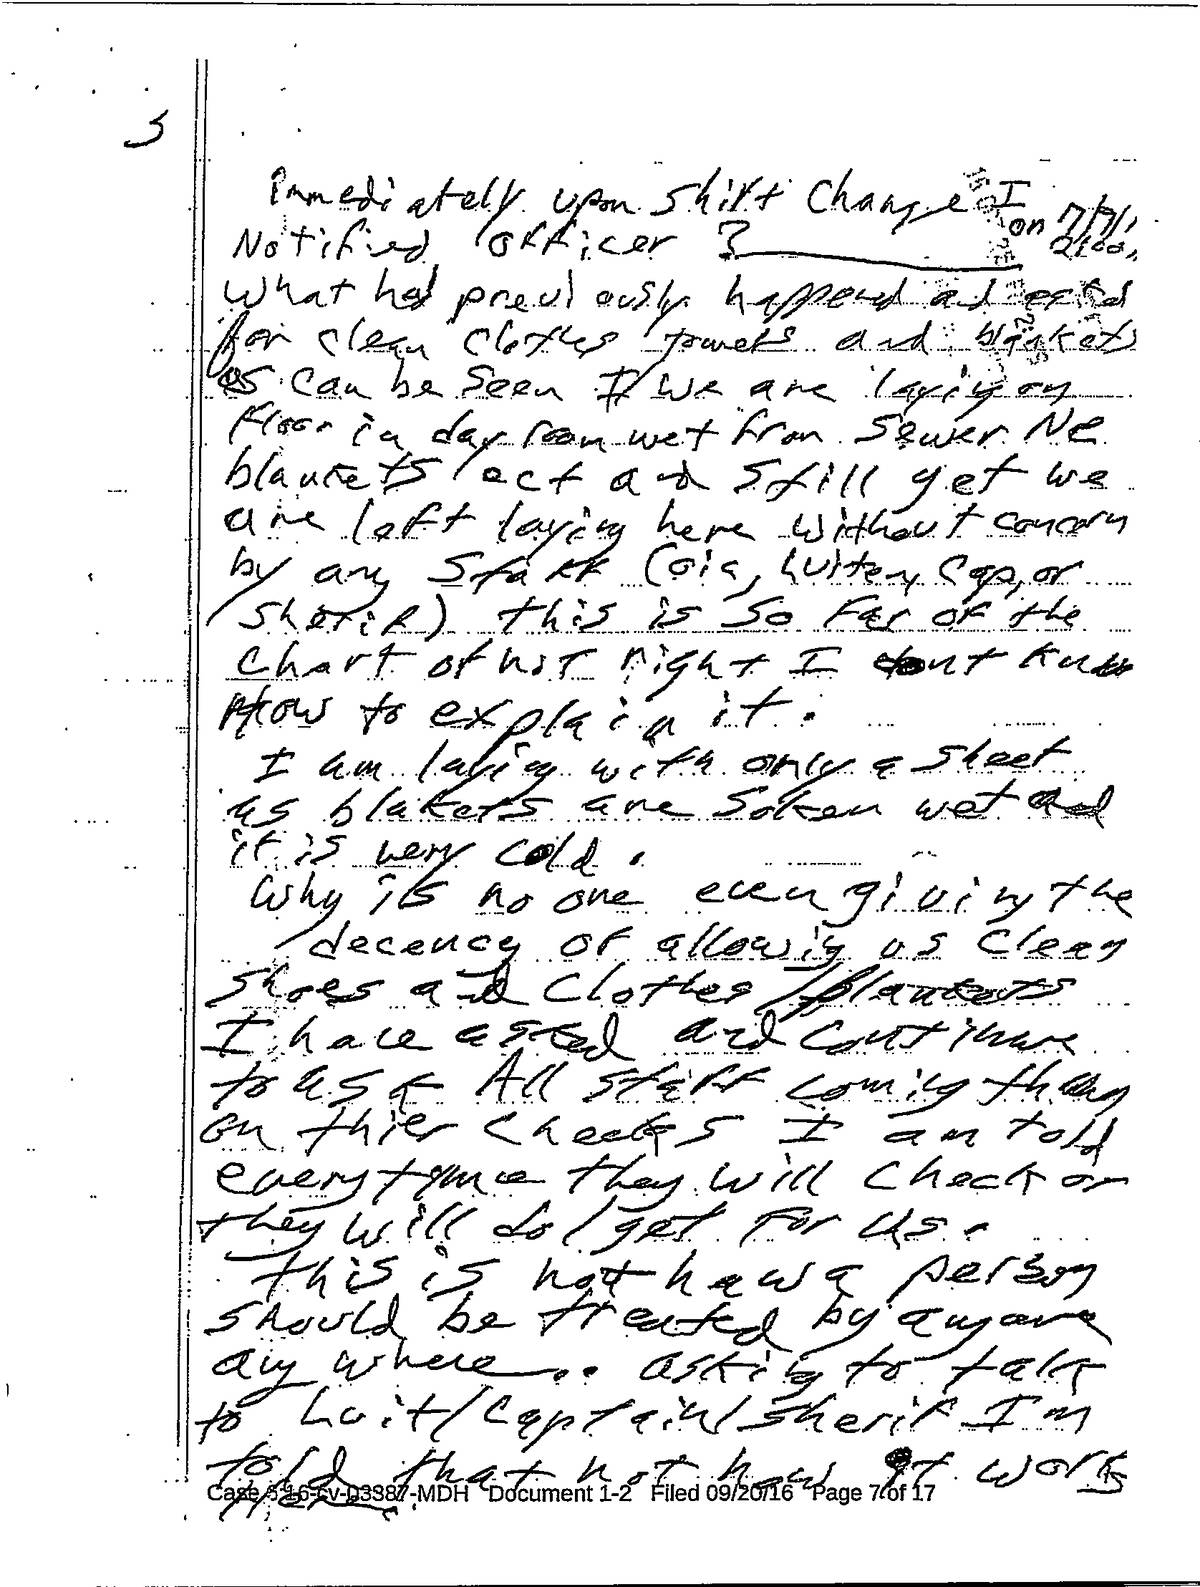 5
Immediately upon Shift Change I
on 7/9/
2100,
Notified officer ?
What had previously happend ad
for clean Clothes towels and blankets
as can be Seen I/we are laying on
floor in day room wet from Sewer
blankets ect and Still yet we
are left laying here without concern
by any Staff (Cpl, Luiten, Cap, or
Sherif) this is So far of the
Chart of not right I dont know
How to explain it.
I am laying with only a Sheet
as blakets are Soken wet and
it is very cold.
Why is no one even giving the
decency of allowig us Clean
Shoes and Clothes / blankets
I have asked and continue
to ask All staff comig
on thier Checks I am told
everytime they will check or
they will do/get for us.
this is not how a person
should be treated by anyone
any where.. askig to talk
to Luit/Captain/Sherif I'm
told that not how it works
Case 6:16-cv-03387-MDH Document 1-2 Filed 09/20/16 Page 7 of 17